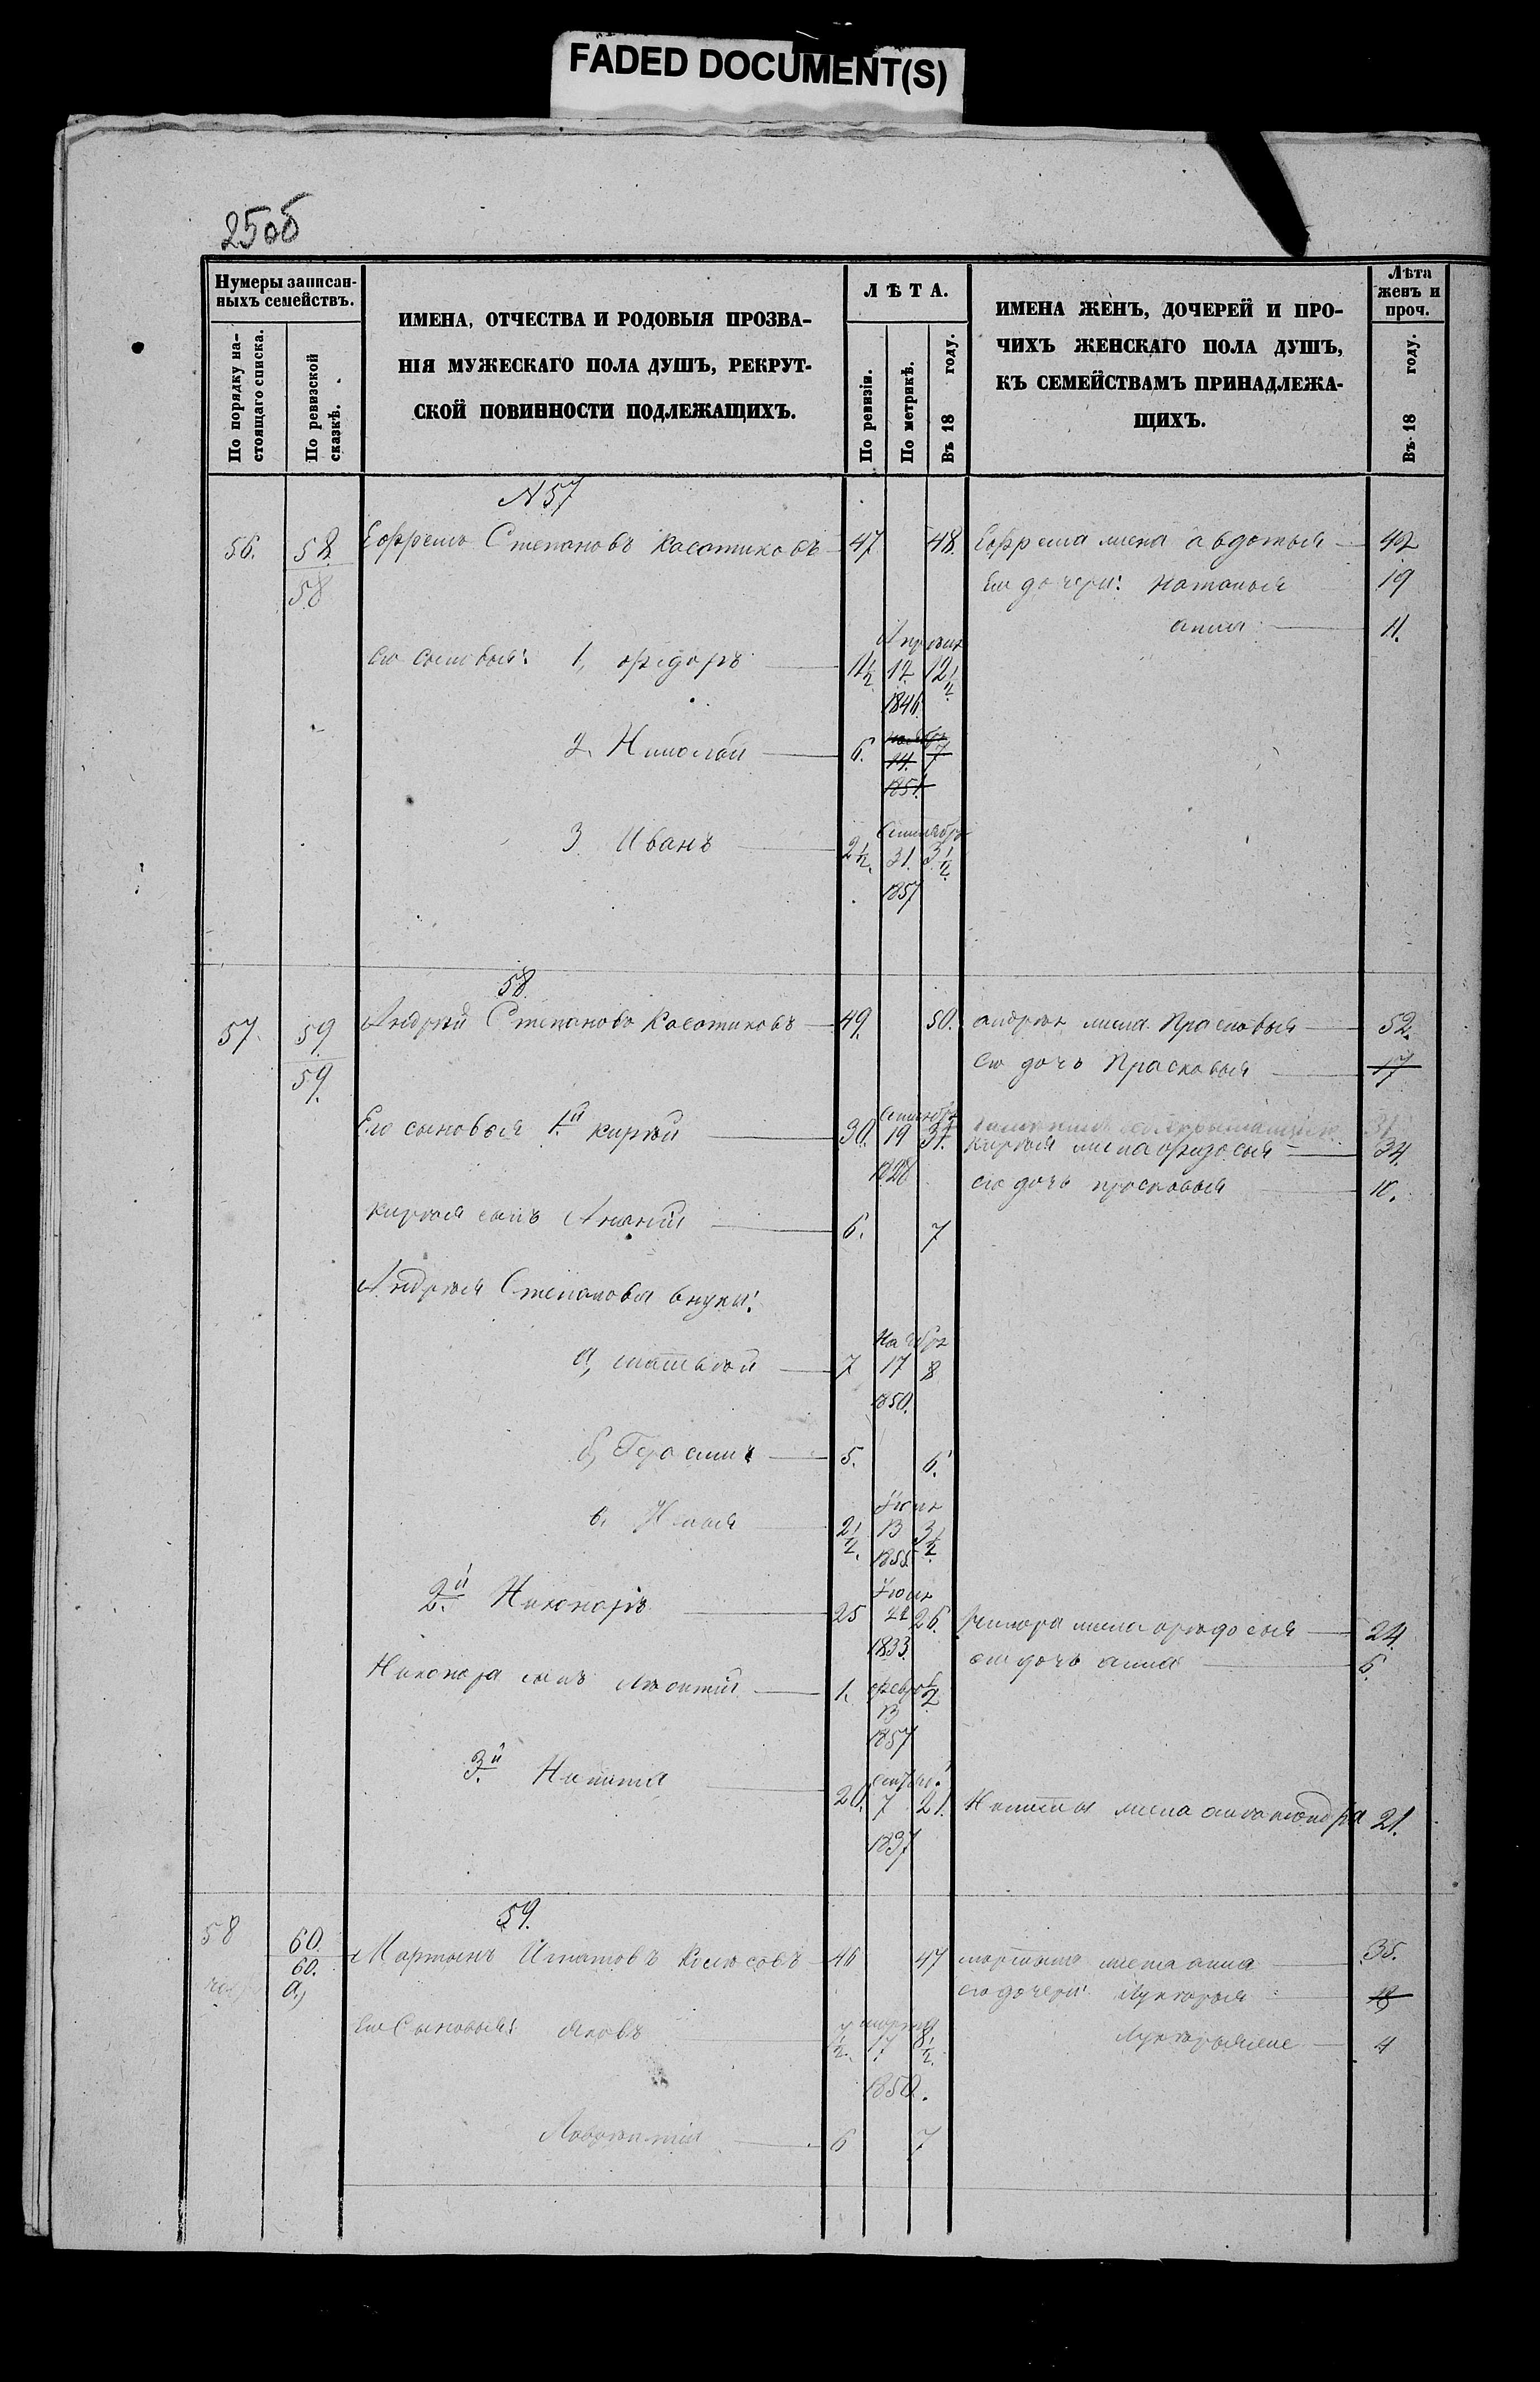 FADED DOCUMENT(S)
25об
Нумеры записан-
ныхъ семействъ.
По порядку на-
стоящаго списка.
По ревизской
сказкѣ.
ИМЕНА, ОТЧЕСТВА И РОДОВЫЯ ПРОЗВА-
НІЯ МУЖЕСКАГО ПОЛА ДУШЪ, РЕКРУТ-
СКОЙ ПОВИННОСТИ ПОДЛЕЖАЩИХЪ.
ЛѢТА.
По ревизіи.
По метрикѣ.
Въ 18 году.
ИМЕНА ЖЕНЪ, ДОЧЕРЕЙ И ПРО-
ЧИХЪ ЖЕНСКАГО ПОЛА ДУШЪ,
КЪ СЕМЕЙСТВАМЪ ПРИНАДЛЕЖА-
ЩИХЪ.
Лѣта
женъ и
проч.
Въ 18 году.
N 57
56. 58. Степановъ Касатиковъ 47 48. жена авдотья 42
58 Ею дочери: Наталья 19
анна 11.
Его сыновья: 1, федоръ 11½ 17 12½
1846
2. Николай 6. 14. 7
1851
3 Иванъ 2½ Сентября 31. 3½
1857
58.
57. 59 Андрѣй Степановъ Касатиковъ 49. 50. андрѣя жена Прасковья 52.
59. Его дочь Прасковья 17
Его сыновья 1й кирѣй 30. Сентября 19 31. кирѣя жена федосья 34.
1828 его дочь прасковья 10.
кирѣя сынъ Ананій 6. 7
Андрѣя Степанова внуки:
а, матвѣй 7 Ноября 17 8
1850.
б, Герасимъ 5. 6.
в. Илья 2½ 13 3½
1855
2й. Никаноръ 25 26. жена федосья 24.
1833. дочь анна 6.
Никанора сынъ Леонтій 1. февр 13 2
1857
3й. Никита 20. 7 21. Никиты жена александра 21.
1837
59.
58 60. Мартынъ Игнатовъ Колосовъ 46 47 мартына жена анна 35.
60. его дочери Лукерья 18
а,
Его Сыновья: яковъ 7½ марта 17. 8½ 4
1850.
Лаврентій 6 7